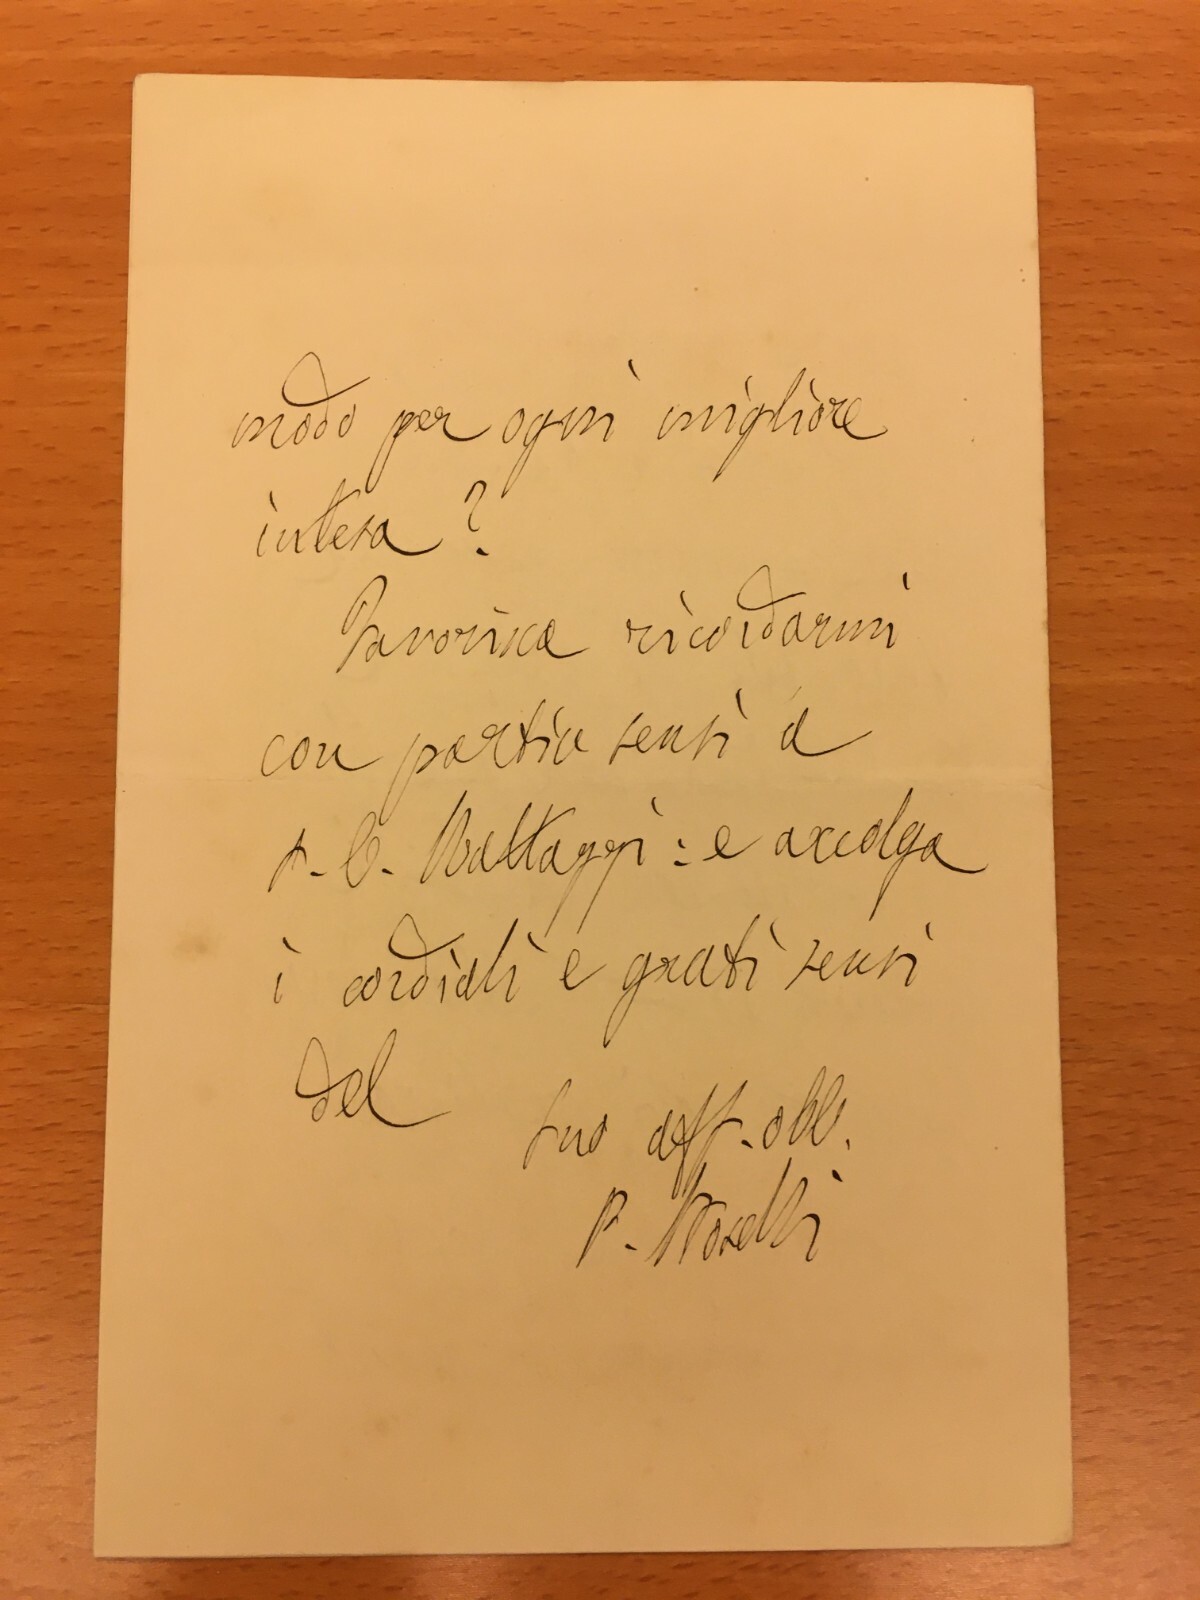 modo per ogni migliore
intesa?
Favorisca ricordarmi
con partic sensi a
: e accolga
i cordiali e grati sensi
del
suo aff. obb.
P. Boselli